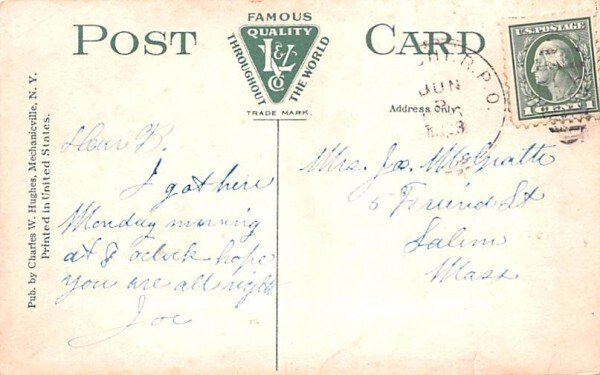 POST CARD
FAMOUS
QUALITY
L&V
Co
THROUGHOUT THE WORLD
TRADE MARK.
Address Only.
U.S. POSTAGE
1 CENT 1
R.P.O.
JUN
Pub. by Charles W. Hughes, Mechanicville, N. Y.
Printed in United States.
Dear B.
I got here
Monday morning
at 8 oclock hope
you are all right
Joe
Mrs. Jos. McGrath
5 Friend St
Salem
Mass